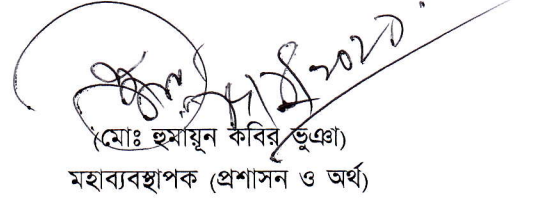 (মোঃ হুমায়ূন কবির ভুঞা)
মহাব্যবস্থাপক (প্রশাসন ও অর্থ)